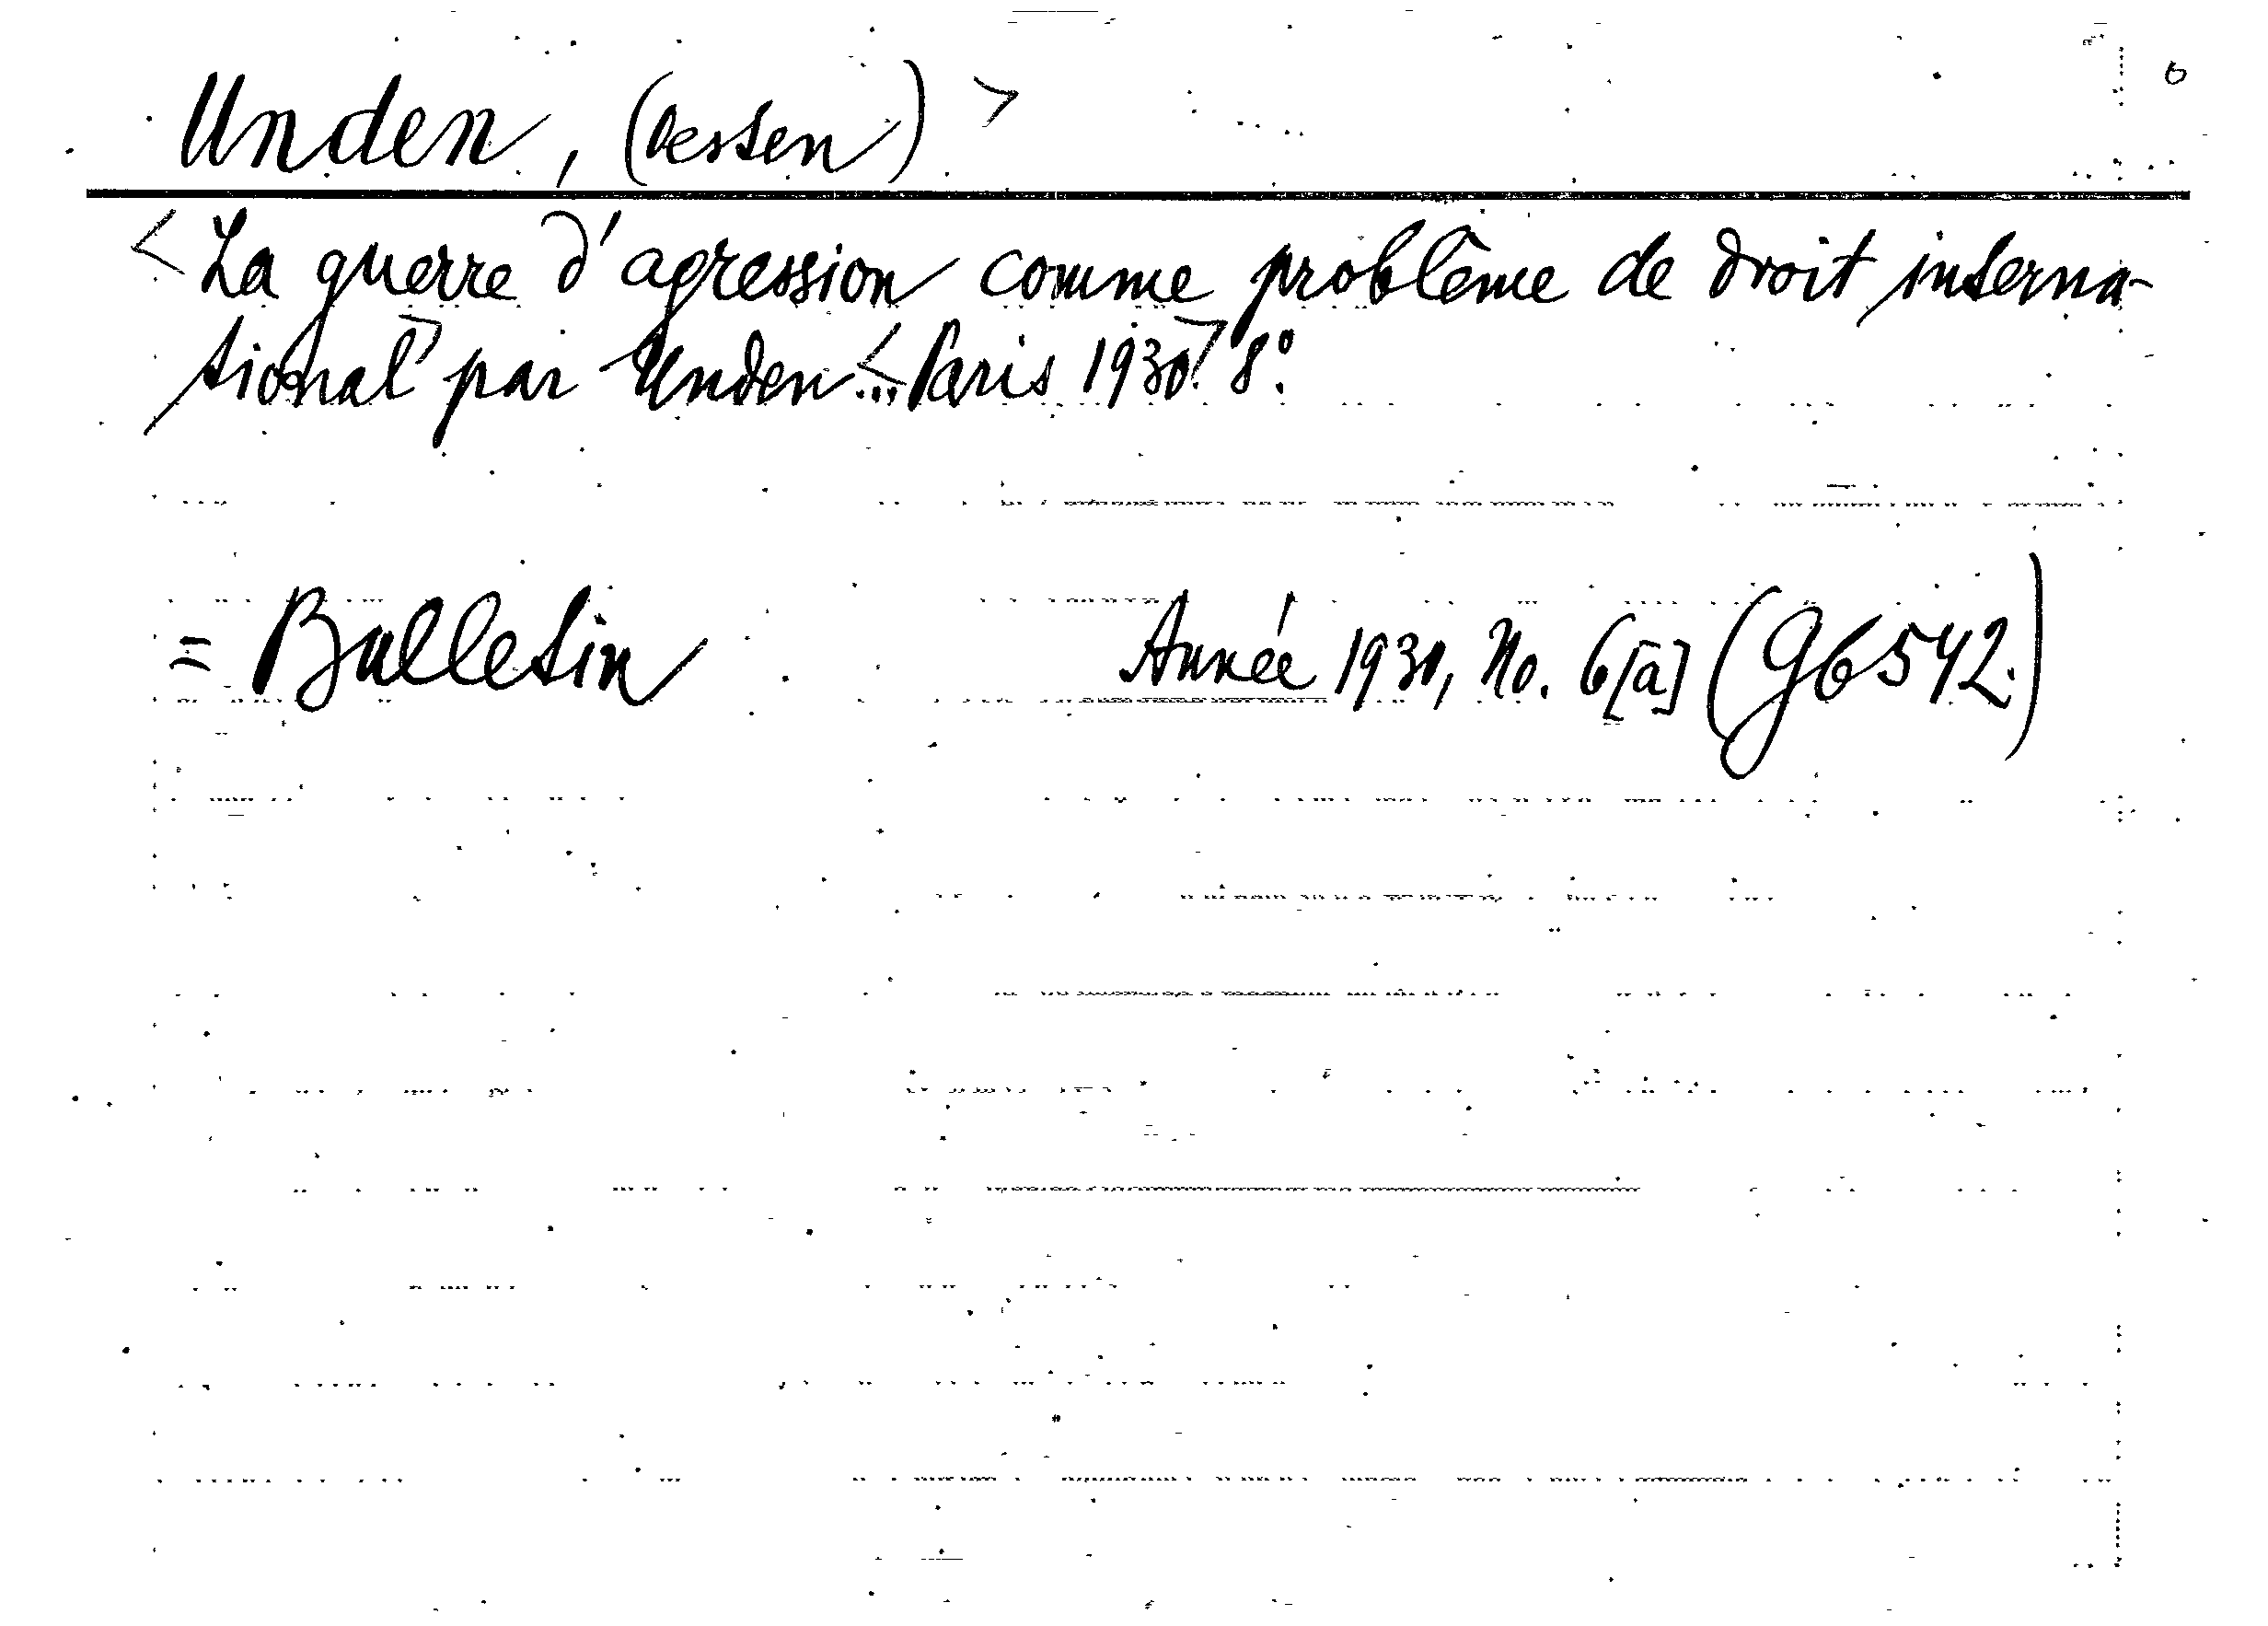 Unden, (Oesten) >
<La guerre d'agression comme problême de droit interna-
tional> par Unden...<Paris 1930.> 8°.
= Bulletin Année 1930, No. 6[a] (Gb 542.)